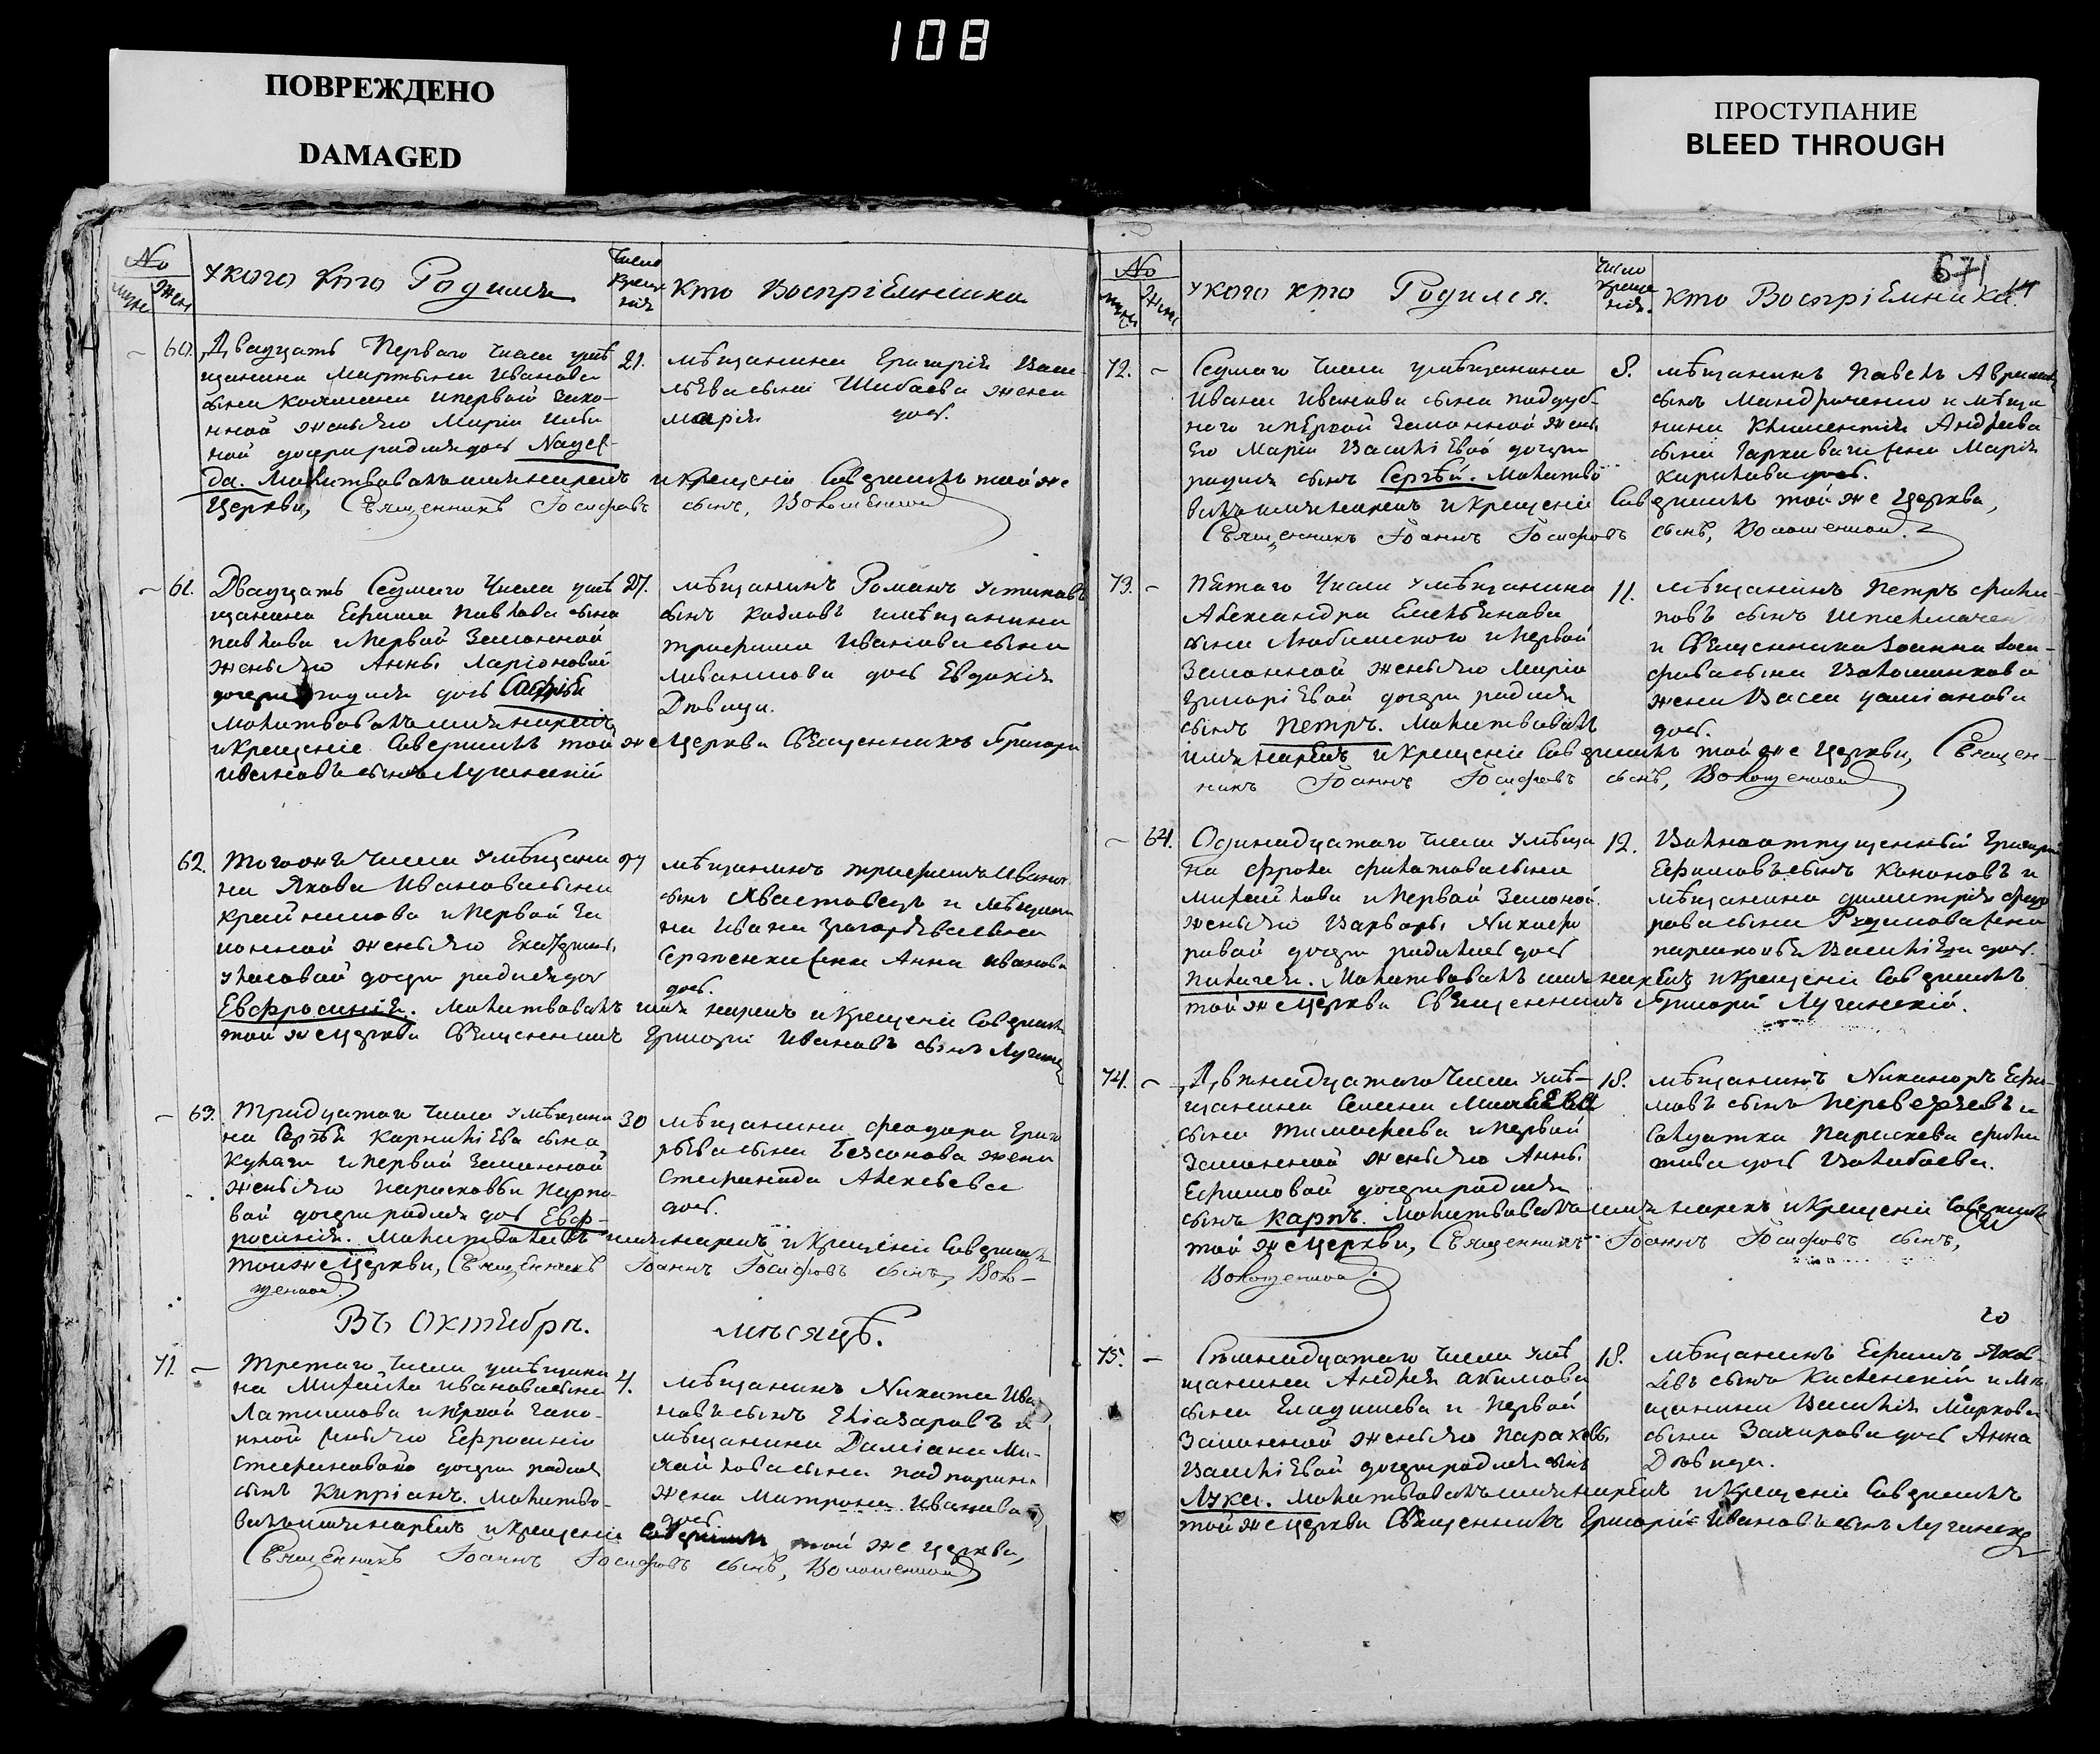 108
ПОВРЕЖДЕНО
DAMAGED
ПРОСТУПАНИЕ
BLEED THROUGH
No
муж
жен
у кого кто Родился
Число
Креще
нія
кто Воспріемника
60.
Двадцать Перваго числа умѣ
щанина Мартына Иванова
сына и первой зако-
нной жены его Маріи
ной дочери родися дочь Надеж-
да. Молитвовалъ имя нарекъ
Церкви, Священникъ Іосифовъ
21.
мѣщанина Григорія Васи-
льева сына Шибаева жена
Марія дочь.
и крещеніе Совершилъ той же
сынъ, Волошенной
61.
Двадцать Седмаго Числа умѣ
щанина Ефима Павлова сына
Павлова и Первой Законной
жены его Анны Ларіоновой
дочери родися дочь Софія
Молитвовалъ имя нарекъ
и крещеніе Совершилъ той же Церкви Священникъ Григорій
Ивановъ сынъ Лучинскій
27.
мѣщанинъ Романъ Устиновъ
сынъ Козловъ и мѣщанина
Трофима Иванова сына
Ливанцова дочь Евдокія
Дѣвица.
62.
Того ж числа у мѣщани
на Якова Иванова сына
Крайникова и Первой За
конной жены его Екатерины
Уласовой дочери родися дочь
Евфросинія. Молитвовалъ имя нарекъ и Крещеніе Совершилъ
той же Церкви Священникъ Григорій Ивановъ сынъ Лучинс
27
мѣщанинъ Трофимъ Иванов
сынъ Хвастовецъ и мѣщани
на Ивана Григорьева сына
Сергіенка жена Анна Иванова
дочь.
63.
Тридцатаго числа у мѣщани
на Сергѣя Корниліева сына
Купачи и первой Законной
жены его Парасковьи Карпо-
вой дочери родися дочь Евф-
росинія. Молитвовалъ имя нарекъ и Крещеніе Совершилъ
той же Церкви, Священникъ Іоаннъ Іосифовъ сынъ, Воло-
шенной.
30
мѣщанина Феодора Григо
рьева сына Безсонова жена
Стефанида Алексѣева
дочь.
Въ Октябрѣ. мѣсяцѣ.
71.
Третаго числа у мѣщани
на Михаила Иванова сына
Латышова и первой зако-
нной жены его Ефросиніи
Стефановой дочери родися
сынъ Кипріанъ. Молитво-
валъ имя нарекъ и крещеніе Совершилъ той же церкви,
Священникъ Іоаннъ Іосифовъ сынъ, Волошенной
4.
мѣщанинъ Никита Ива
новъ сынъ Еліазаровъ и
мѣщанина Даміана Ми-
хайлова сына
жена Матрона Иванова
дочь.
No
муж
жен
у кого кто Родился.
Число
Креще
нія.
кто Воспріемника
671
72.
Седмаго числа у мѣщанина
Ивана Иванова сына Поддуб-
ного и первой Законной жены
его Маріи Василіевой дочери
родися сынъ Сергѣй. Молитво
валъ имя нарекъ и крещеніе Совершилъ той же Церкви,
Священникъ Іоаннъ Іосифовъ сынъ, Волошенной.
8.
мѣщанинъ Павелъ Аврамов
сынъ Мандриченко и мѣща
нина Климентія Андреева
сына жена Марія
Карпова дочь.
73.
Пятаго Числа у мѣщанина
Александра Емельянова
сына Любимского и Первой
Законной жены его Маріи
Григоріевой дочери родися
сынъ Петръ. Молитвовалъ
имя нарекъ и крещеніе Совершилъ той же Церкви, Священ-
никъ Іоаннъ Іосифовъ сынъ, Волошенной
11.
мѣщанинъ Петръ Фили-
повъ сынъ
и Священника Іоанна Іоси-
фова сына Волошинкова
жена Васса Даміанова
дочь.
64.
Одинадцатаго числа у мѣща
на Фрола Филатова сына
Михайлова и Первой Законой
жены его Варвары Никифо
ровой дочери родилась дочь
Пелагея. Молитвовалъ имя нарекъ и Крещеніе Совершилъ
той же Церкви Священникъ Григорій Лучинскій.
12.
Волноотпущенный Григорій
Ефимовъ сынъ Кононовъ и
мѣщанина Димитрія Федо
рова сына жена
Парасковья Василіева дочь.
74.
Двенадцатаго Числа у мѣ-
щанина Семена Михеева
сына Тимофеева и первой
Законной жены его Анны
Ефимовой дочери родися
сынъ Карпъ. Молитвовалъ имя нарекъ и Крещеніе Совершилъ
той же Церкви, Священникъ Іоаннъ Іосифовъ сынъ,
Волошенной.
18.
мѣщанинъ Никаноръ Ефи-
мовъ сынъ Переверзевъ и
Солдатка Параскева Фила
това дочь
75.
Семнадцатаго числа у мѣ
щанина Андрея Акимова
сына Еладышева и Первой
Законной жены его Парасковьи
Василіевой дочери родися сынъ
Лука. Молитвовалъ имя нарекъ и Крещеніе Совершилъ
той же церкви Священникъ Григорій Ивановъ сынъ Лучинск
18.
мѣщанинъ Ефимъ Яков-
левъ сынъ Касленскій и мѣ
щанина Василія Маркова
сына Захарова дочь Анна
Дѣвица.